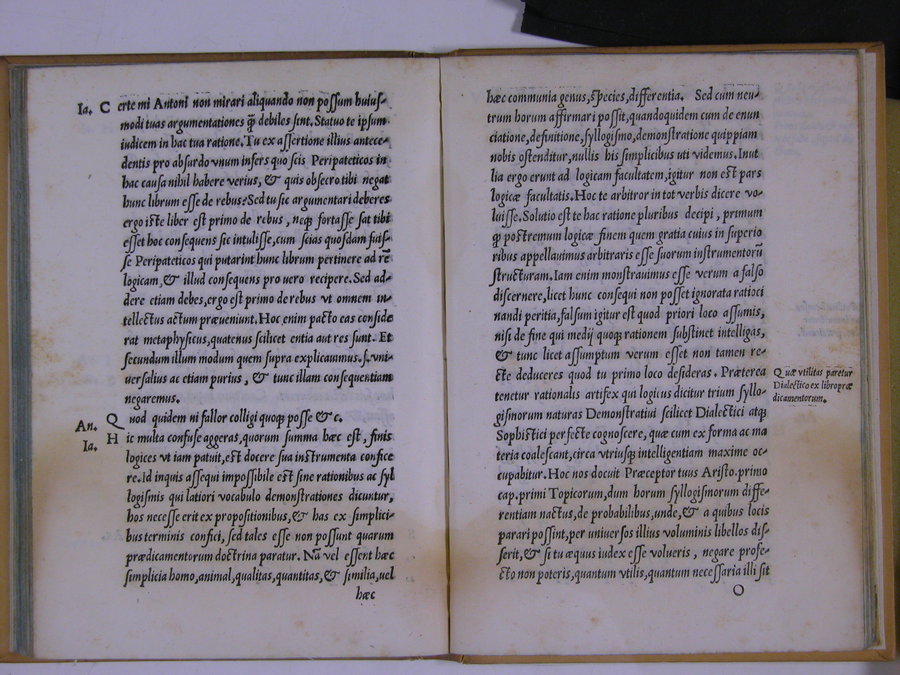 Ia. C erte mi Antoni non mirari aliquando non possum huius-
modi tuas argumentationes q̃ debiles sint. Statuo te ipsum
iudicem in hac tua ratione. Tu ex assertione illius antece-
dentis pro absurdo vnum infers quo scis Peripateticos in
hac causa nihil habere verius, & quis obsecro tibi negat
hunc librum esse de rebus? Sed tu sic argumentari deberes
ergo iste liber est primo de rebus, neq; fortasse sat tibi
esset hoc consequens sic intulisse, cum scias quosdam fuis-
se Peripateticos qui putarint hunc librum pertinere ad rẽ
logicam, & illud consequens pro vero recipere. Sed ad-
dere etiam debes, ergo est primo de rebus vt omnem in-
tellectus actum præueniunt. Hoc enim pacto eas conside
rat metaphysicus, quatenus scilicet entia aut res sunt. Et
secundum illum modum quem supra explicauimus. s. vni-
uersalius ac etiam purius, & tunc illam consequentiam
negaremus.
An. Q uod quidem ni fallor colligi quoq; posse & c.
Ia. H ic multa confuse aggeras, quorum summa hæc est, finis
logices vt iam patuit, est docere sua instrumenta confice
re. Id inquis assequi impossibile est sine rationibus ac syl
logismis qui latiori vocabulo demonstrationes dicuntur,
hos necesse erit ex propositionibus, & has ex simplici-
bus terminis confici, sed tales esse non possunt quarum
prædicamentorum doctrina paratur. Nã vel essent hæc
simplicia homo, animal, qualitas, quantitas, & similia, uel
hæc
hæc communia genus, species, differentia. Sed cum neu-
trum horum affirmari possit, quandoquidem cum de enun
ciatione, definitione, syllogismo, demonstratione quippiam
nobis ostenditur, nullis his simplicibus uti videmus. Inut
lia ergo erunt ad logicam facultatem, igitur non est pars
logicæ facultatis. Hoc te arbitror in tot verbis dicere vo-
luisse. Solutio est te hac ratione pluribus decipi, primum
q̃ postremum logicæ finem quem gratia cuius in superio
ribus appellauimus arbitraris esse suorum instrumentorũ
structuram. Iam enim monstrauimus esse verum a falso
discernere, licet hunc consequi non posset ignorata ratioci
nandi peritia, falsum igitur est quod priori loco assumis,
nisi de fine qui medij quoq; rationem substinet intelligas,
& tunc licet assumptum verum esset non tamen re-
cte deduceres quod tu primo loco desideras. Præterea
tenetur rationalis artifex qui logicus dicitur trium syllo-
gismorum naturas Demonstratiui scilicet Dialectici atq;
Sophistici perfecte cognoscere, quæ cum ex forma ac ma
teria coalescant, circa vtriusq; intelligentiam maxime oc-
cupabitur. Hoc nos docuit Præceptor tuus Aristo. primo
cap. primi Topicorum, dum horum syllogismorum diffe-
rentiam nactus, de probabilibus, unde, & a quibus locis
parari possint, per uniuersos illius voluminis libellos dis-
serit, & si tu æquus iudex esse volueris, negare profe-
cto non poteris, quantum vtilis, quantum necessaria illi sit
Quæ vtilitas paretur
Dialectico ex libro præ
dicamentorum.
O